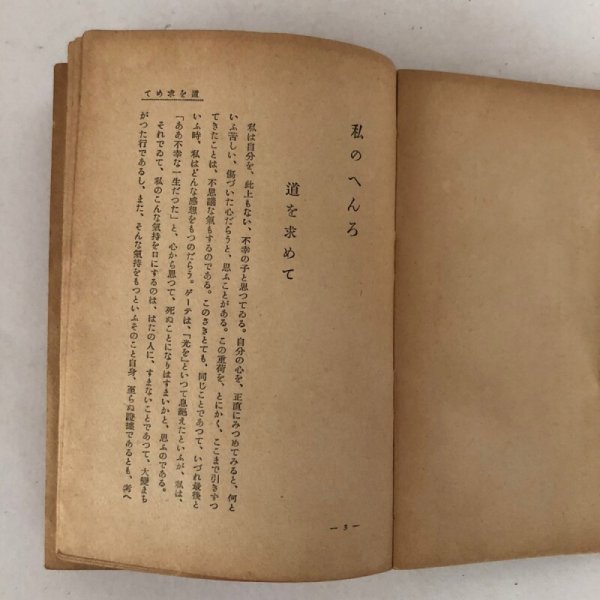 私のへんろ
道を求めて
私は自分を、此上もない、不幸の子と思つてゐる。自分の心を、正直にみつめてみると、何と
いふ苦しい、傷づいた心だらうと、思ふことがある。この重荷を、とにかく、ここまで引きずつ
てきたことは、不思議な氣もするのである。このさきとても、同じことであつて、いづれ最後と
いふ時、私はどんな感想をもつのだらう。ゲーテは、「光を」といつて息絕えたといふが、私は、
「ああ不幸な一生だつた」と、心から思つて、死ぬことになりはすまいかと、思ふのである。
それでゐて、私のこんな氣持を口にするのは、はたの人に、すまないことであつて、大變まち
がつた行であるし、また、そんな氣持をもつといふそのこと自身、至らぬ證據であるとも、考へ
道を求めて
— 3 —